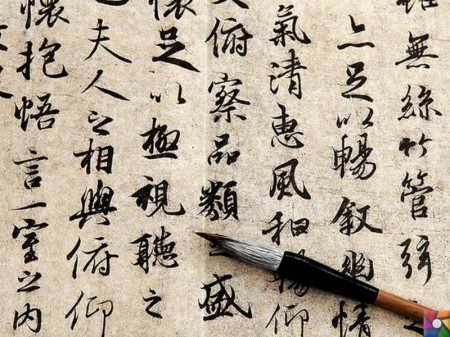 雖無絲竹管弦之
亦足以暢敘幽情
氣清惠風和暢仰
大俯察品類之盛
懷足以極視聽之
夫人之相與俯仰
懷抱悟言一室之內